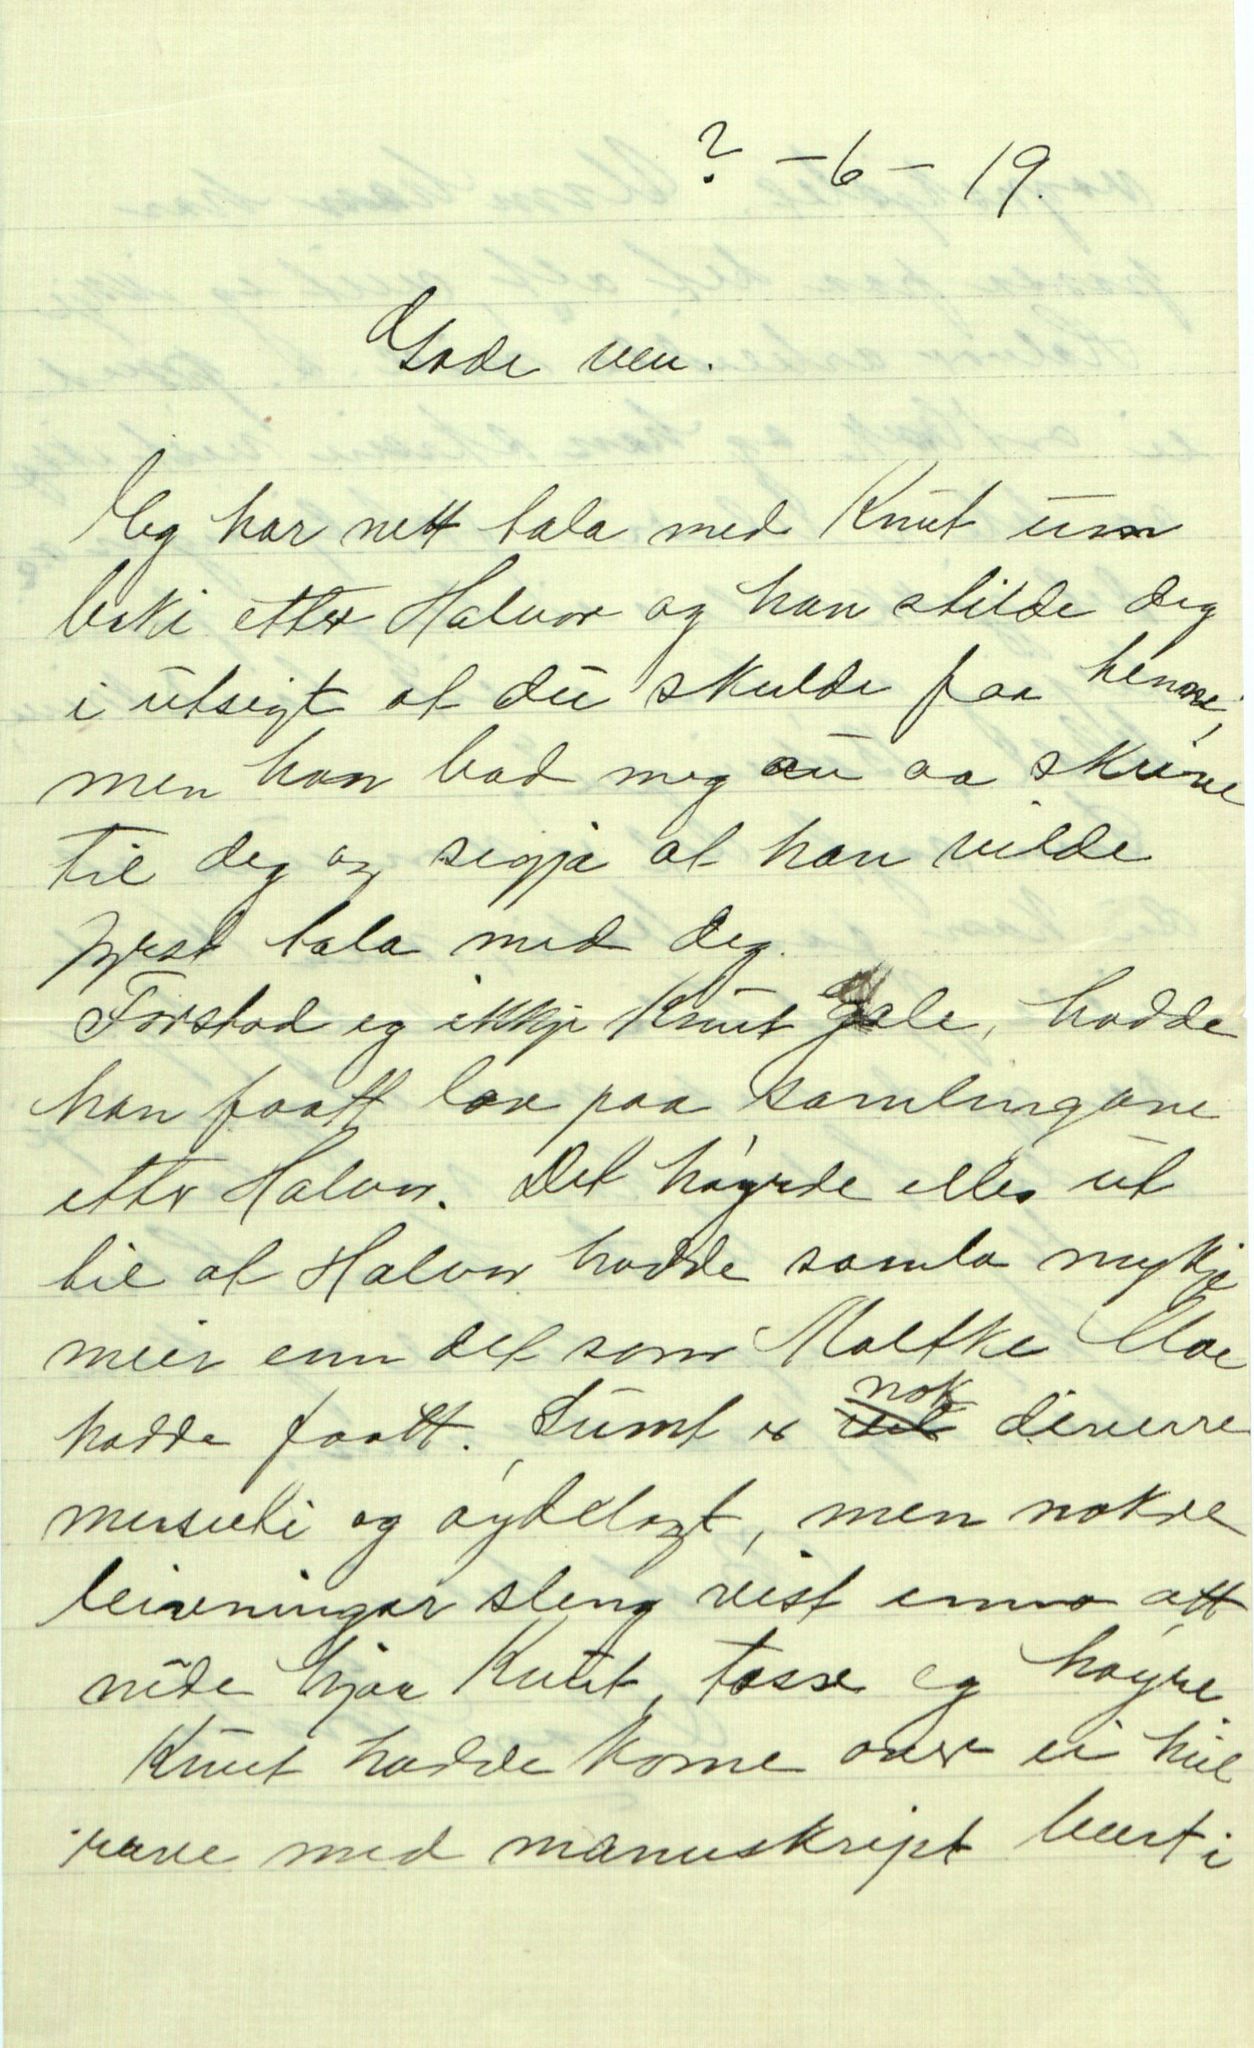 ? - 6 - 19.
Gode ven.
Eg har nett tala med Knut um
boki etter Halvor og han stilde deg
i utsigt at du skulde faa henne,
men han bad meg au aa skrive
til deg og segja at han vilde
fyrst tala med deg.
Forstod eg ikkje Knut gale, hadde
han faatt lov paa samlingane
etter Halvor. Det høyrde elles ut
til at Halvor hadde samla mykje
meir enn det som Moltke Moe
hadde faatt. Sumt er nok diverre
og øydelagt, men nokre
leivningar sleng vist enno att
nede hjaa Knut, tosse eg høyre
Knut hadde kome over ei heil
røve med manuskript burt i